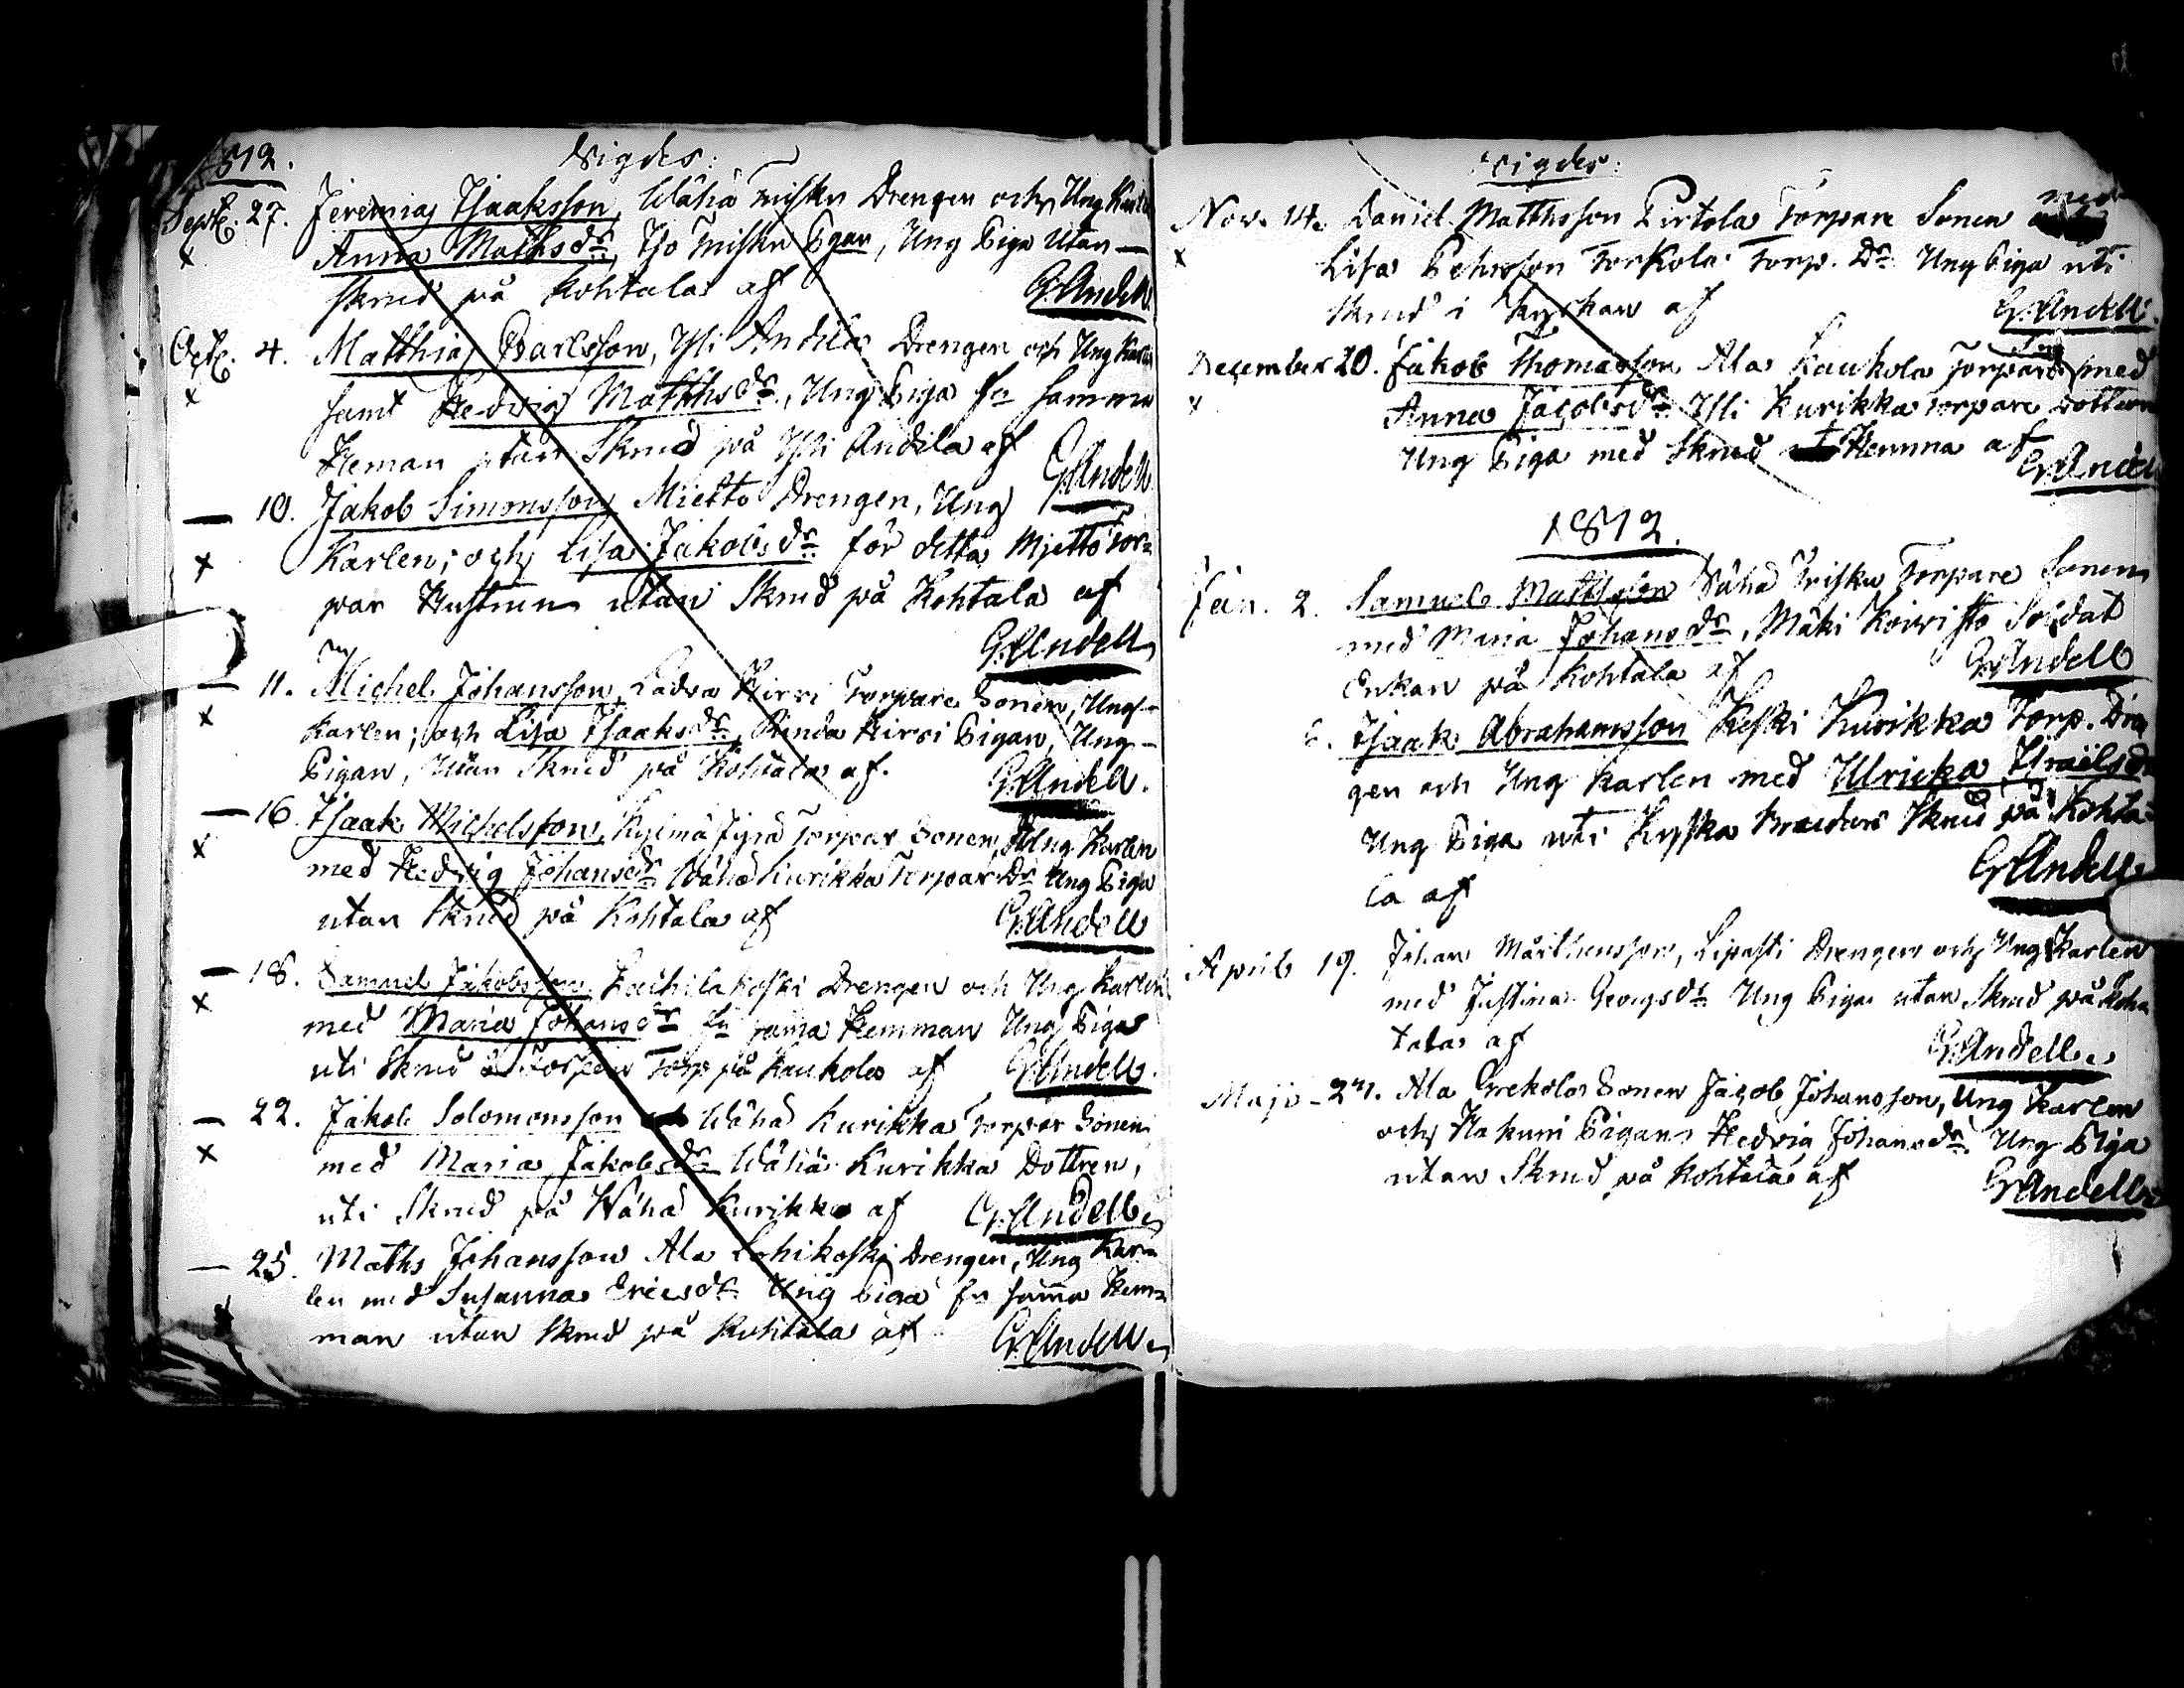 1812.
Vigdes:
Sept. 27. Jeremias Isaaksson, Wähä Trisku Drengen och Ung Karlen
x Anna Mathsdr, Iso Trisku Pgan, Ung Piga Utan
skrud på Kohtala af
G: Andell
Oct. 4. Matthias Carlsson, Yli Andila Drengen och Ung Karlen
x samt Hedvig Matthsdr, Ung Piga fr samma
Heman utan Skrud på Yli Andila af
G: Andell
— 10. Jakob Simonsson Mietto Drengen, Ung
x Karlen; och Lisa Jakobsdr för detta Mjetto Tor=
par Hustrun utan Skrud på Kohtala af
G: Andell
— 11. Michel Johansson, Ladva Hirvi Torpare Sonen, Ung
x Karlen; och Lisa Isaaksdr, Hirvi Pigan, Ung-
Pigan, Utan Skrud på Kohtala af.
G: Andell.
— 16. Isaak Michelsson, Kylmä Torpar Sonen, Ung Karlen
x med Hedvig Johansdr Wähä Kurikka Torpar Dr Ung Piga
utan Skrud på Kohtala af
G: Andell
— 18. Samuel Jakobsson, koski Drengen och Ung Karlen
x med Maria Johansdr fr sama Hemman Ung Piga
uti Skrud Torp på Kaukola af
G: Andell.
— 22. Jakob Solomonsson Wähä Kurikka Torpar Sonen
x med Maria Jakobsdr Wähä Kurikka Dottren,
uti Skrud på Wähä Kurikka af
G: Andell
— 25. Maths Johansson Ala Lohikoski Drengen, Ung Kar=
len med Susanna Ericsdr Ung Piga fr samma Hem=
man utan Skrud på Kohtala af
G: Andell
Vigdes:
Nov. 14. Daniel Matthsson Pirtola Torpare Sonen med
x Lisa Pehrsson Torkola Torp. Dr Ung Piga uti
Skrud i Kyrkan af
G: Andell.
December 20. Jakob Thomasson Ala Kaukola Torpare med
x Anna Jacobsdr Yli Kurikka Torpare Dottern
Ung Piga med Skrud Hemma af
G: Andell
1812.
Jan. 2. Samuel Mattsson Wähä Trisku Torpare Sonen
med Maria Johansdr, Mäki Koivisto Soldat
Enkan på Kohtala af
G: Andell
6. Isaak Abrahamsson Keski Kurikka Torp. Dren
gen och Ung Karlen med Ulricka Israëlsdr
Ung Piga uti Skrud på Kohta=
la af
G: Andell
April 19. Johan Mårthensson, Lipasti Drengen och Ung Karlen
med Justina Georgsdr Ung Piga utan Skrud på Koh=
tala af
G: Andell
Maji - 24. Ala Grekola Sonen Jacob Johansson, Ung Karlen
och Hakuni Pigan Hedvig Johansdr Ung Piga
utan Skrud på Kohtala af
G: Andell